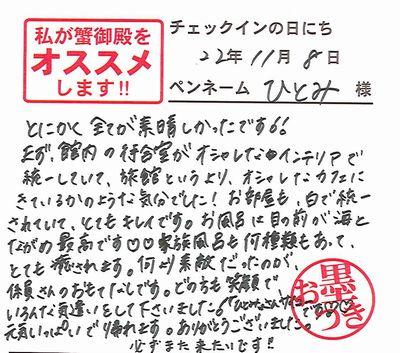 私が蟹御殿を
オススメ
します!!
チェックインの日にち
22年11月8日
ペンネーム ひとみ 様
とにかく全てが素晴しかったです!!
まず、館内の待合室がオシャレなインテリアで
統一していて、旅館というより、オシャレなカフェに
きているかのような気分でした! お部屋も、白で統一
されていて、とてもキレイです。お風呂は目の前が海と
ながめ最高です♡♡家族風呂も何種類もあって、
とても癒されます。何より素敵だったのが、
係員さんのおもてなしです。どの方も笑顔で
いろんな気遣いをして下さいました。
元気いっぱいで帰れます。ありがとうございました。
必ずまた来たいです!
お墨つき